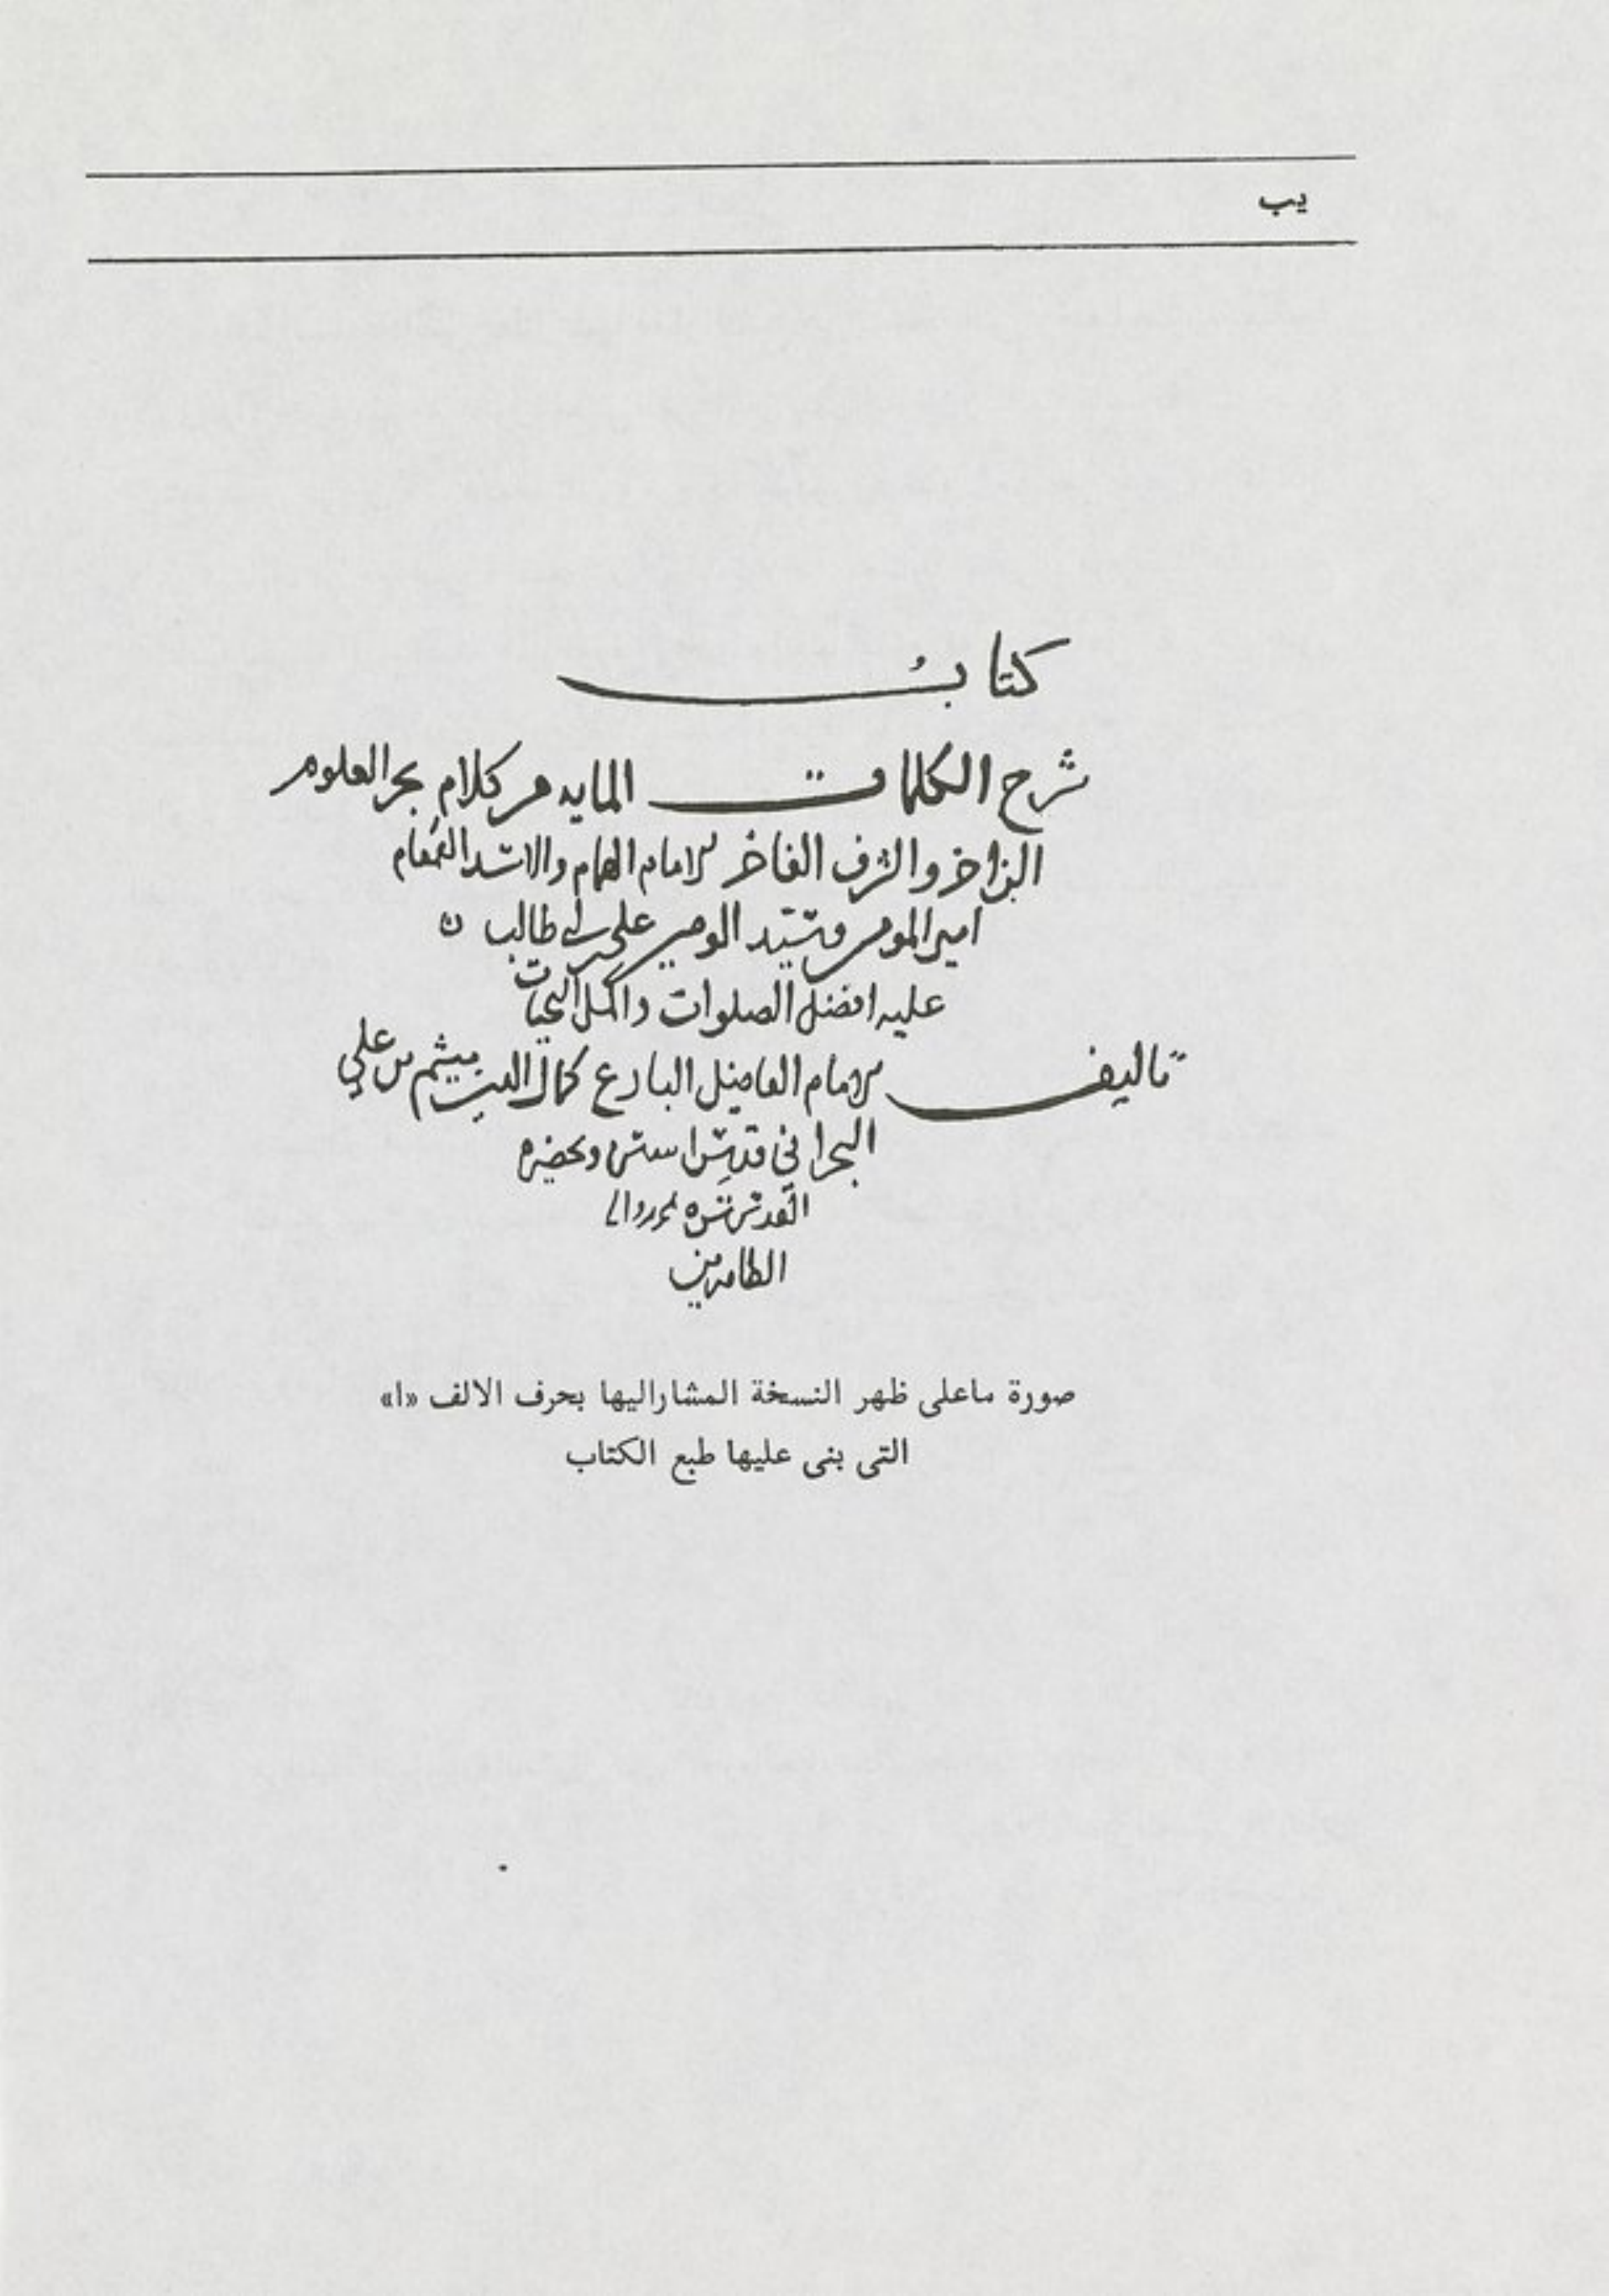 يب
كتاب
شرح الكلمات المايه من كلام بحر العلوم
الزاخر والشرف الفاخر الامام الهمام والاسد القمقام
امير المومنين وسيد الوصيين علي بن ابي طالب
عليه افضل الصلوات واكمل التحيات
تاليف الامام الفاضل البارع كمال الدين ميثم بن علي
البحراني قدس الله سره وبحضيره
القدس سره
الطاهرين
صورة ماعلى ظهر النسخة المشاراليها بحرف الالف «ا»
التى بنى عليها طبع الكتاب